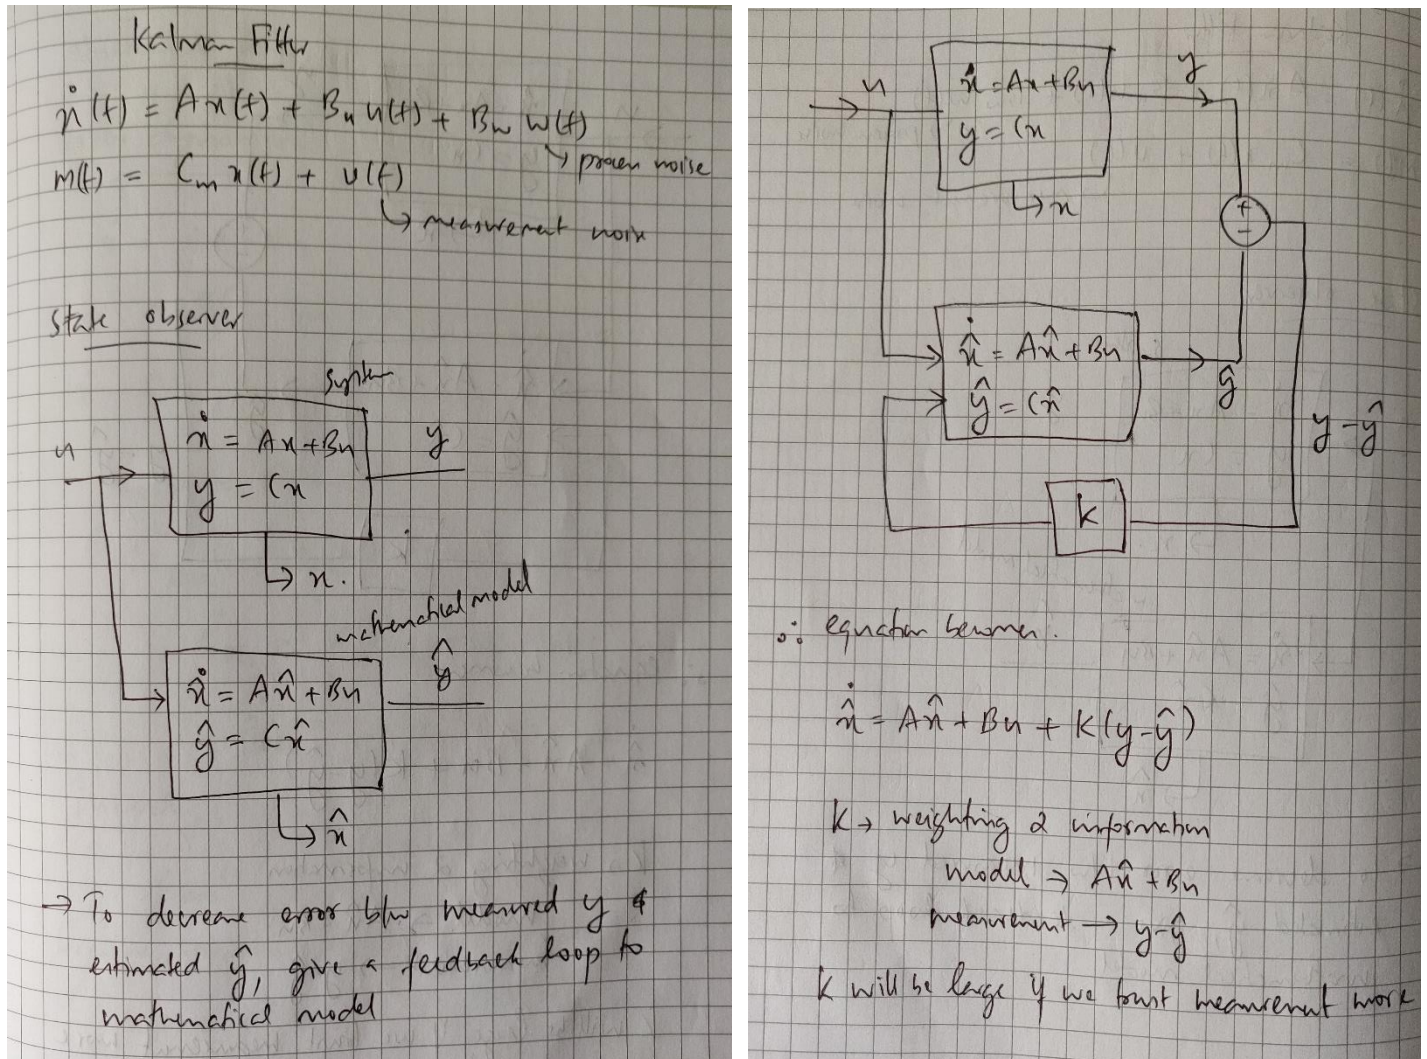 Kalman Filter
ẋ(t) = Ax(t) + Bᵤu(t) + B_w w(t)
↳ process noise
m(t) = C_m x(t) + v(t)
↳ measurement noise
State observer
System
u
ẋ = Ax+Bu
y
y = Cx
↳ x.
mathematical model
x̂̇ = Ax̂ + Bu
ŷ
ŷ = Cx̂
↳ x̂
→ To decrease error b/w measured y &
estimated ŷ, give a feedback loop to
mathematical model
u
ẋ = Ax+Bu
y
y = Cx
↳ x
+
−
x̂̇ = Ax̂ + Bu
ŷ = Cx̂
ŷ
y-ŷ
K
∴ equation becomes.
x̂̇ = Ax̂ + Bu + K(y-ŷ)
K → weighting 2 information
model → Ax̂ + Bu
measurement → y-ŷ
K will be large if we trust measurement more